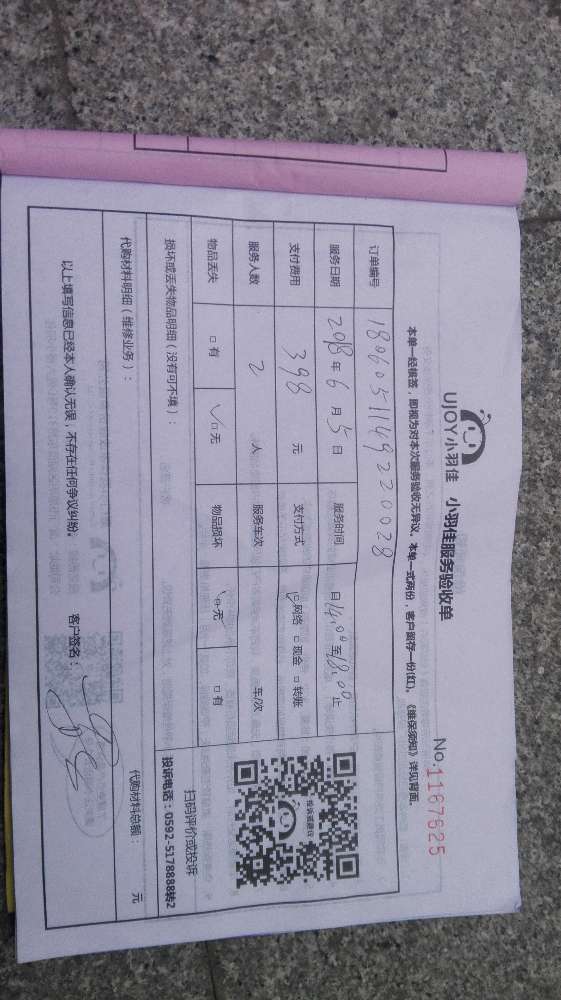 UJOY小羽佳 小羽佳服务验收单
No.1167625
本单一经核签，即视为对本次服务验收无异议。本单一式两份，客户留存一份(红)，《维保须知》详见背面。
订单编号 1806051149220028
服务日期 2018年6月5日 服务时间 日14:00至18:00止
支付费用 398 元 支付方式 ☑网络 □现金 □转账
服务人数 2 人 服务车次 车/次
物品丢失 □有 ☑无 物品损坏 ☑无 □有
扫码评价或投诉
投诉电话：0592-5178888转2
损坏或丢失物品明细（没有可不填）：
代购材料明细（维修业务）： 代购材料总额： 元
以上填写信息已经本人确认无误，不存在任何争议纠纷。 客户签名：